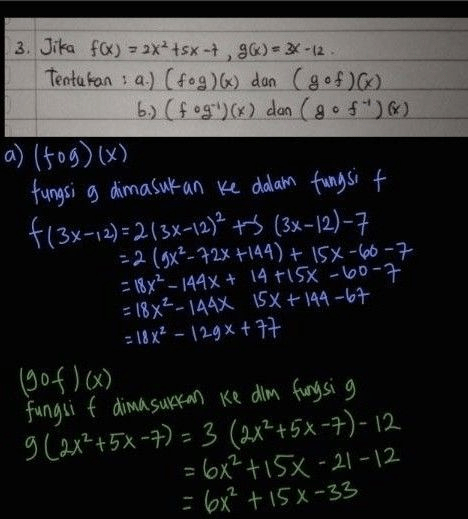 3. Jika f(x) = 2x² + 5x - 7 , g(x) = 3x - 12 .
Tentukan : a.) (f o g)(x) dan (g o f)(x)
b.) (f o g⁻¹)(x) dan (g o f⁻¹)(x)
a) (f o g)(x)
fungsi g dimasukan ke dalam fungsi f
f(3x-12) = 2(3x-12)² + 5 (3x-12) - 7
= 2 (9x² - 72x + 144) + 15x - 60 - 7
= 18x² - 144x + 14 + 15x - 60 - 7
= 18x² - 144x 15x + 144 - 67
= 18x² - 129x + 77
(g o f)(x)
fungsi f dimasukkan ke dlm fungsi g
g(2x² + 5x - 7) = 3 (2x² + 5x - 7) - 12
= 6x² + 15x - 21 - 12
= 6x² + 15x - 33